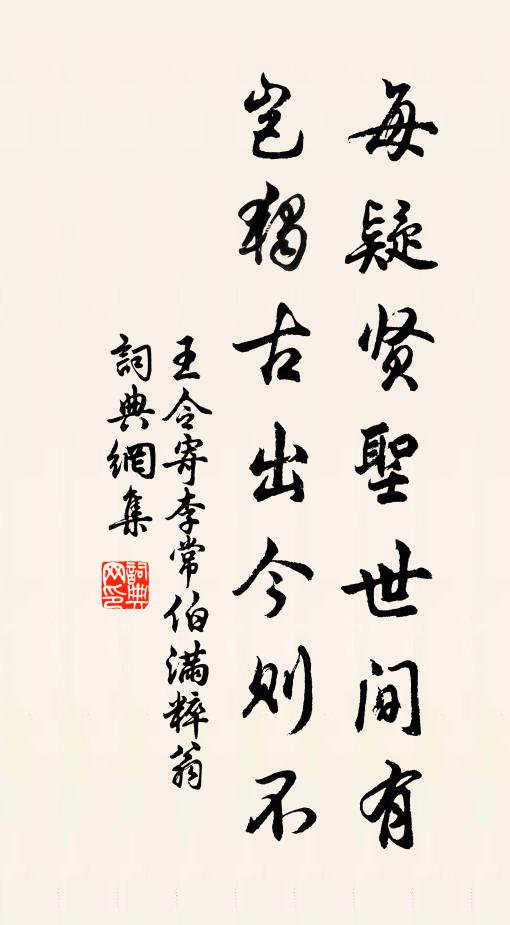 每疑贤聖世间有
岂獨古出今则不
王令寄李常伯满粹翁
詞典網集
詞典网印